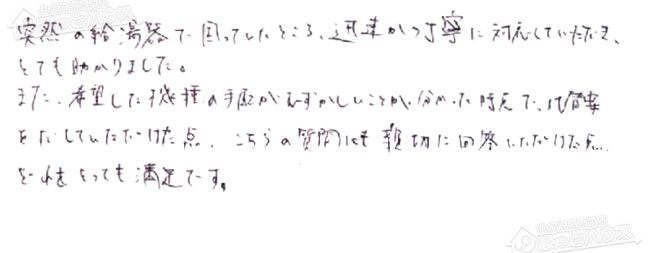 突然の給湯器で困っていたところ、迅速かつ丁寧に対応していただき、
とても助かりました。
また、希望した機種の手配がむずかしいことが分かった時点で、代替案
をだしていただけた点、こちらの質問にも親切に回答いただけた点、
をとっても満足です。